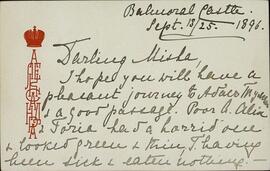 Balmoral Castle
Sept. 13/25. 1896.
Darling Misha,
I hope you will have a
pleasant journey to
& a good passage. Poor A. Alix
& Toria had a horrid one
& looked green & thin, having
been sick & eaten nothing. —